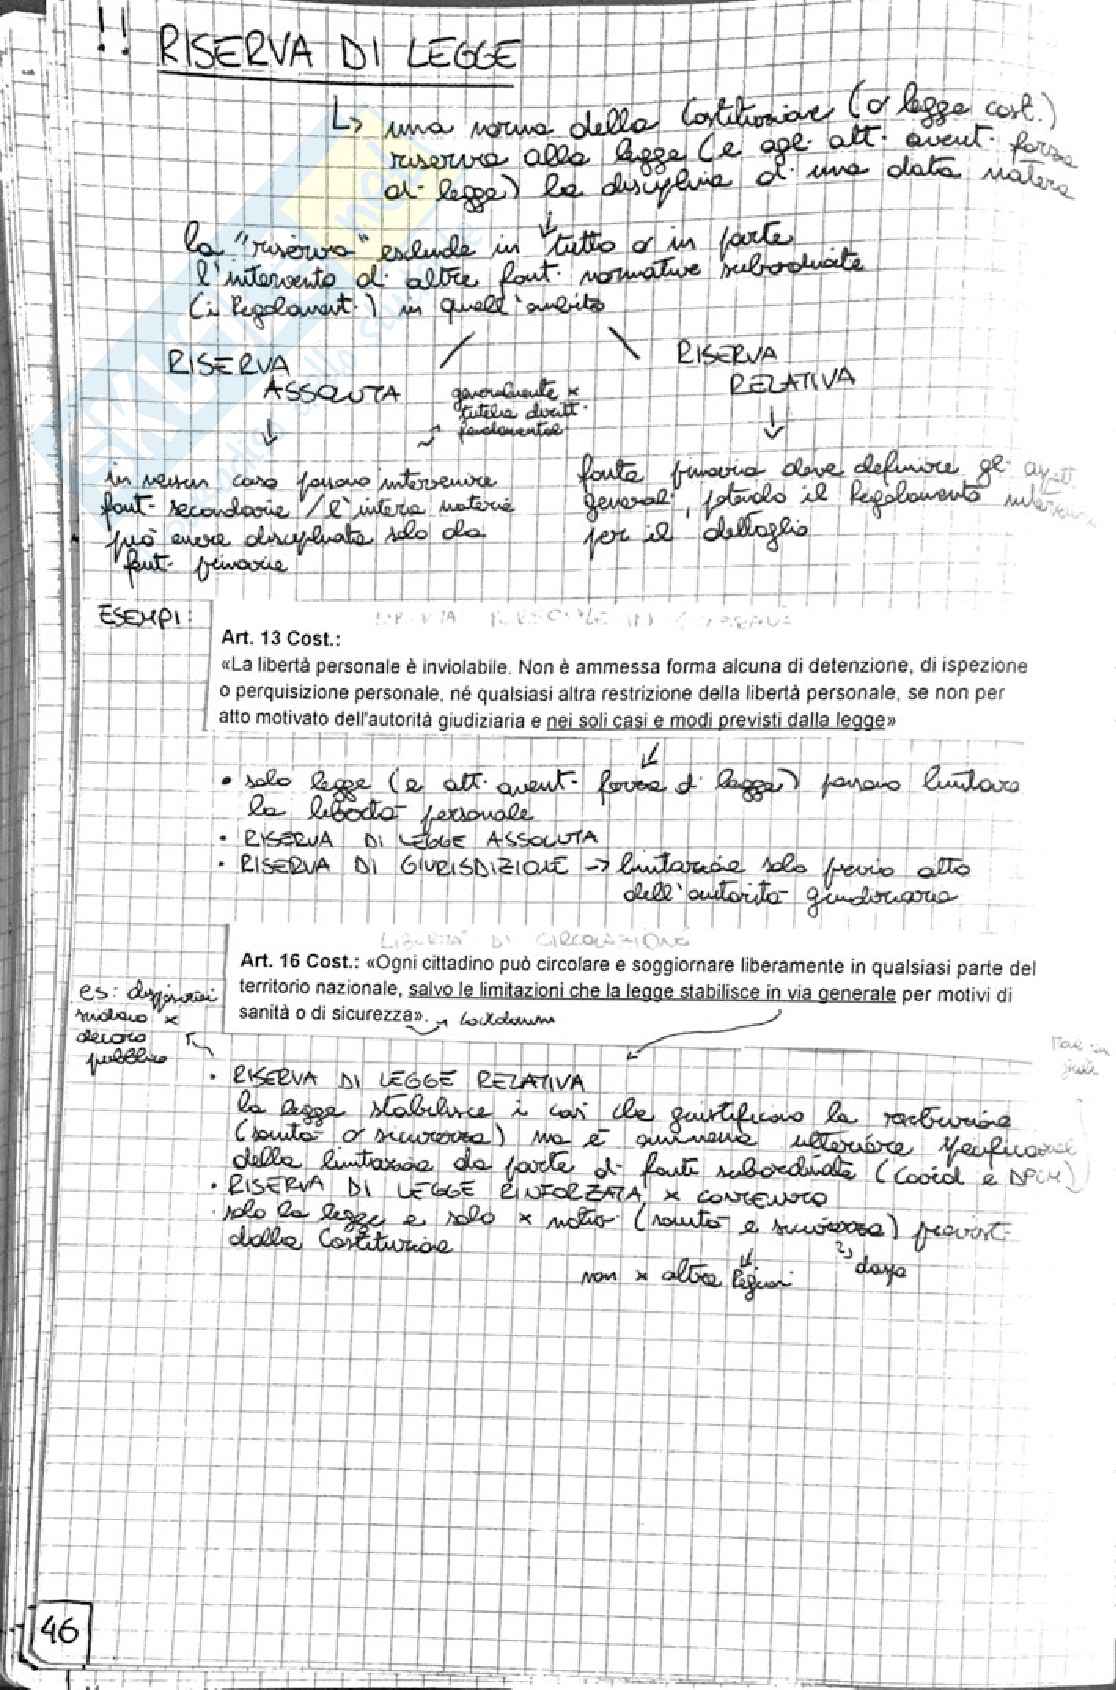 !! RISERVA DI LEGGE
↳ una norma della Costituzione (o legge cost.)
riserva alla legge (e agli atti aventi forza
di legge) la disciplina di una data materia
↓
la "riserva" esclude in tutto o in parte
l'intervento di altre fonti normative subordinate
(i Regolamenti) in quell'ambito
RISERVA
ASSOLUTA
generalmente x
tutela diritti
fondamentali
RISERVA
RELATIVA
in nessun caso possono intervenire
fonti secondarie / l'intera materia
può essere disciplinata solo da
fonti primarie
fonte primaria deve definire gli aspetti
generali, potendo il Regolamento intervenire
per il dettaglio
ESEMPI:
LIBERTÀ PERSONALE
Art. 13 Cost.:
«La libertà personale è inviolabile. Non è ammessa forma alcuna di detenzione, di ispezione
o perquisizione personale, né qualsiasi altra restrizione della libertà personale, se non per
atto motivato dell'autorità giudiziaria e nei soli casi e modi previsti dalla legge»
• solo legge (e atti aventi forza di legge) possono limitare
la libertà personale
• RISERVA DI LEGGE ASSOLUTA
• RISERVA DI GIURISDIZIONE → limitazione solo previo atto
dell'autorità giudiziaria
LIBERTÀ DI CIRCOLAZIONE
Art. 16 Cost.: «Ogni cittadino può circolare e soggiornare liberamente in qualsiasi parte del
territorio nazionale, salvo le limitazioni che la legge stabilisce in via generale per motivi di
sanità o di sicurezza». → lockdown
es: disposizioni
sindaco x
decoro
pubblico
• RISERVA DI LEGGE RELATIVA
la legge stabilisce i casi che giustificano la restrizione
(sanità o sicurezza) ma è ammessa ulteriore specificazione
della limitazione da parte di fonti subordinate (Covid e DPCM)
• RISERVA DI LEGGE RINFORZATA x CONTENUTO
solo la legge e solo x motivi (sanità e sicurezza) previsti
dalla Costituzione
non x altre Ragioni
46